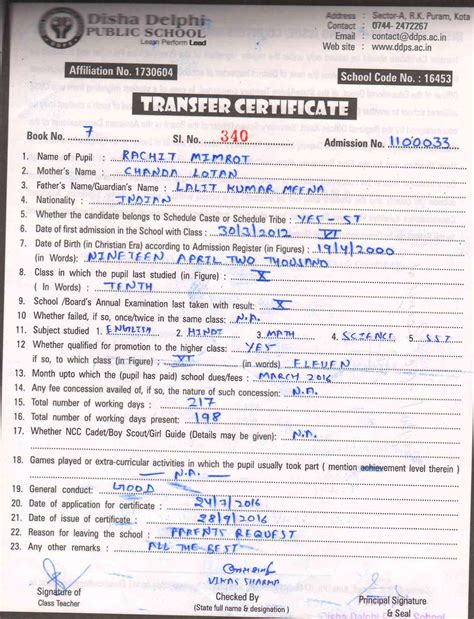 Disha Delphi
PUBLIC SCHOOL
Learn Perform Lead
Address : Sector-A, R.K. Puram, Kota
Contact : 0744-2472267
Email : contact@ddps.ac.in
Web site : www.ddps.ac.in
Affiliation No. 1730604
School Code No. : 16453
TRANSFER CERTIFICATE
Book No. 7 Sl. No. 340 Admission No. 1100033
1. Name of Pupil : RACHIT MIMROT
2. Mother's Name : CHANDA LOTAN
3. Father's Name/Guardian's Name : LALIT KUMAR MEENA
4. Nationality : INDIAN
5. Whether the candidate belongs to Schedule Caste or Schedule Tribe : YES - ST
6. Date of first admission in the School with Class : 30/3/2012 VI
7. Date of Birth (in Christian Era) according to Admission Register (in Figures) : 19/4/2000
(in Words): NINETEEN APRIL TWO THOUSAND
8. Class in which the pupil last studied (in Figure) : X
(In Words) : TENTH
9. School /Board's Annual Examination last taken with result: X
10 Whether failed, if so, once/twice in the same class: N.A.
11. Subject studied 1. ENGLISH 2. HINDI 3. MATH 4. SCIENCE 5. S.S.T
12 Whether qualified for promotion to the higher class: YES
if so, to which class (in Figure) : XI (in words) ELEVEN
13. Month upto which the (pupil has paid) school dues/fees : MARCH 2016
14. Any fee concession availed of, if so, the nature of such concession: N.A.
15. Total number of working days : 217
16. Total number of working days present: 198
17. Whether NCC Cadet/Boy Scout/Girl Guide (Details may be given): N.A.
18. Games played or extra-curricular activities in which the pupil usually took part ( mention achievement level therein )
— N.A. —
19. General conduct: GOOD
20. Date of application for certificate : 24/7/2016
21. Date of issue of certificate : 28/9/2016
22. Reason for leaving the school : PARENTS REQUEST
23. Any other remarks : ALL THE BEST
VIKAS SHARMA
Signature of
Class Teacher
Checked By
(State full name & designation)
Principal Signature
& Seal
Disha Delphi School